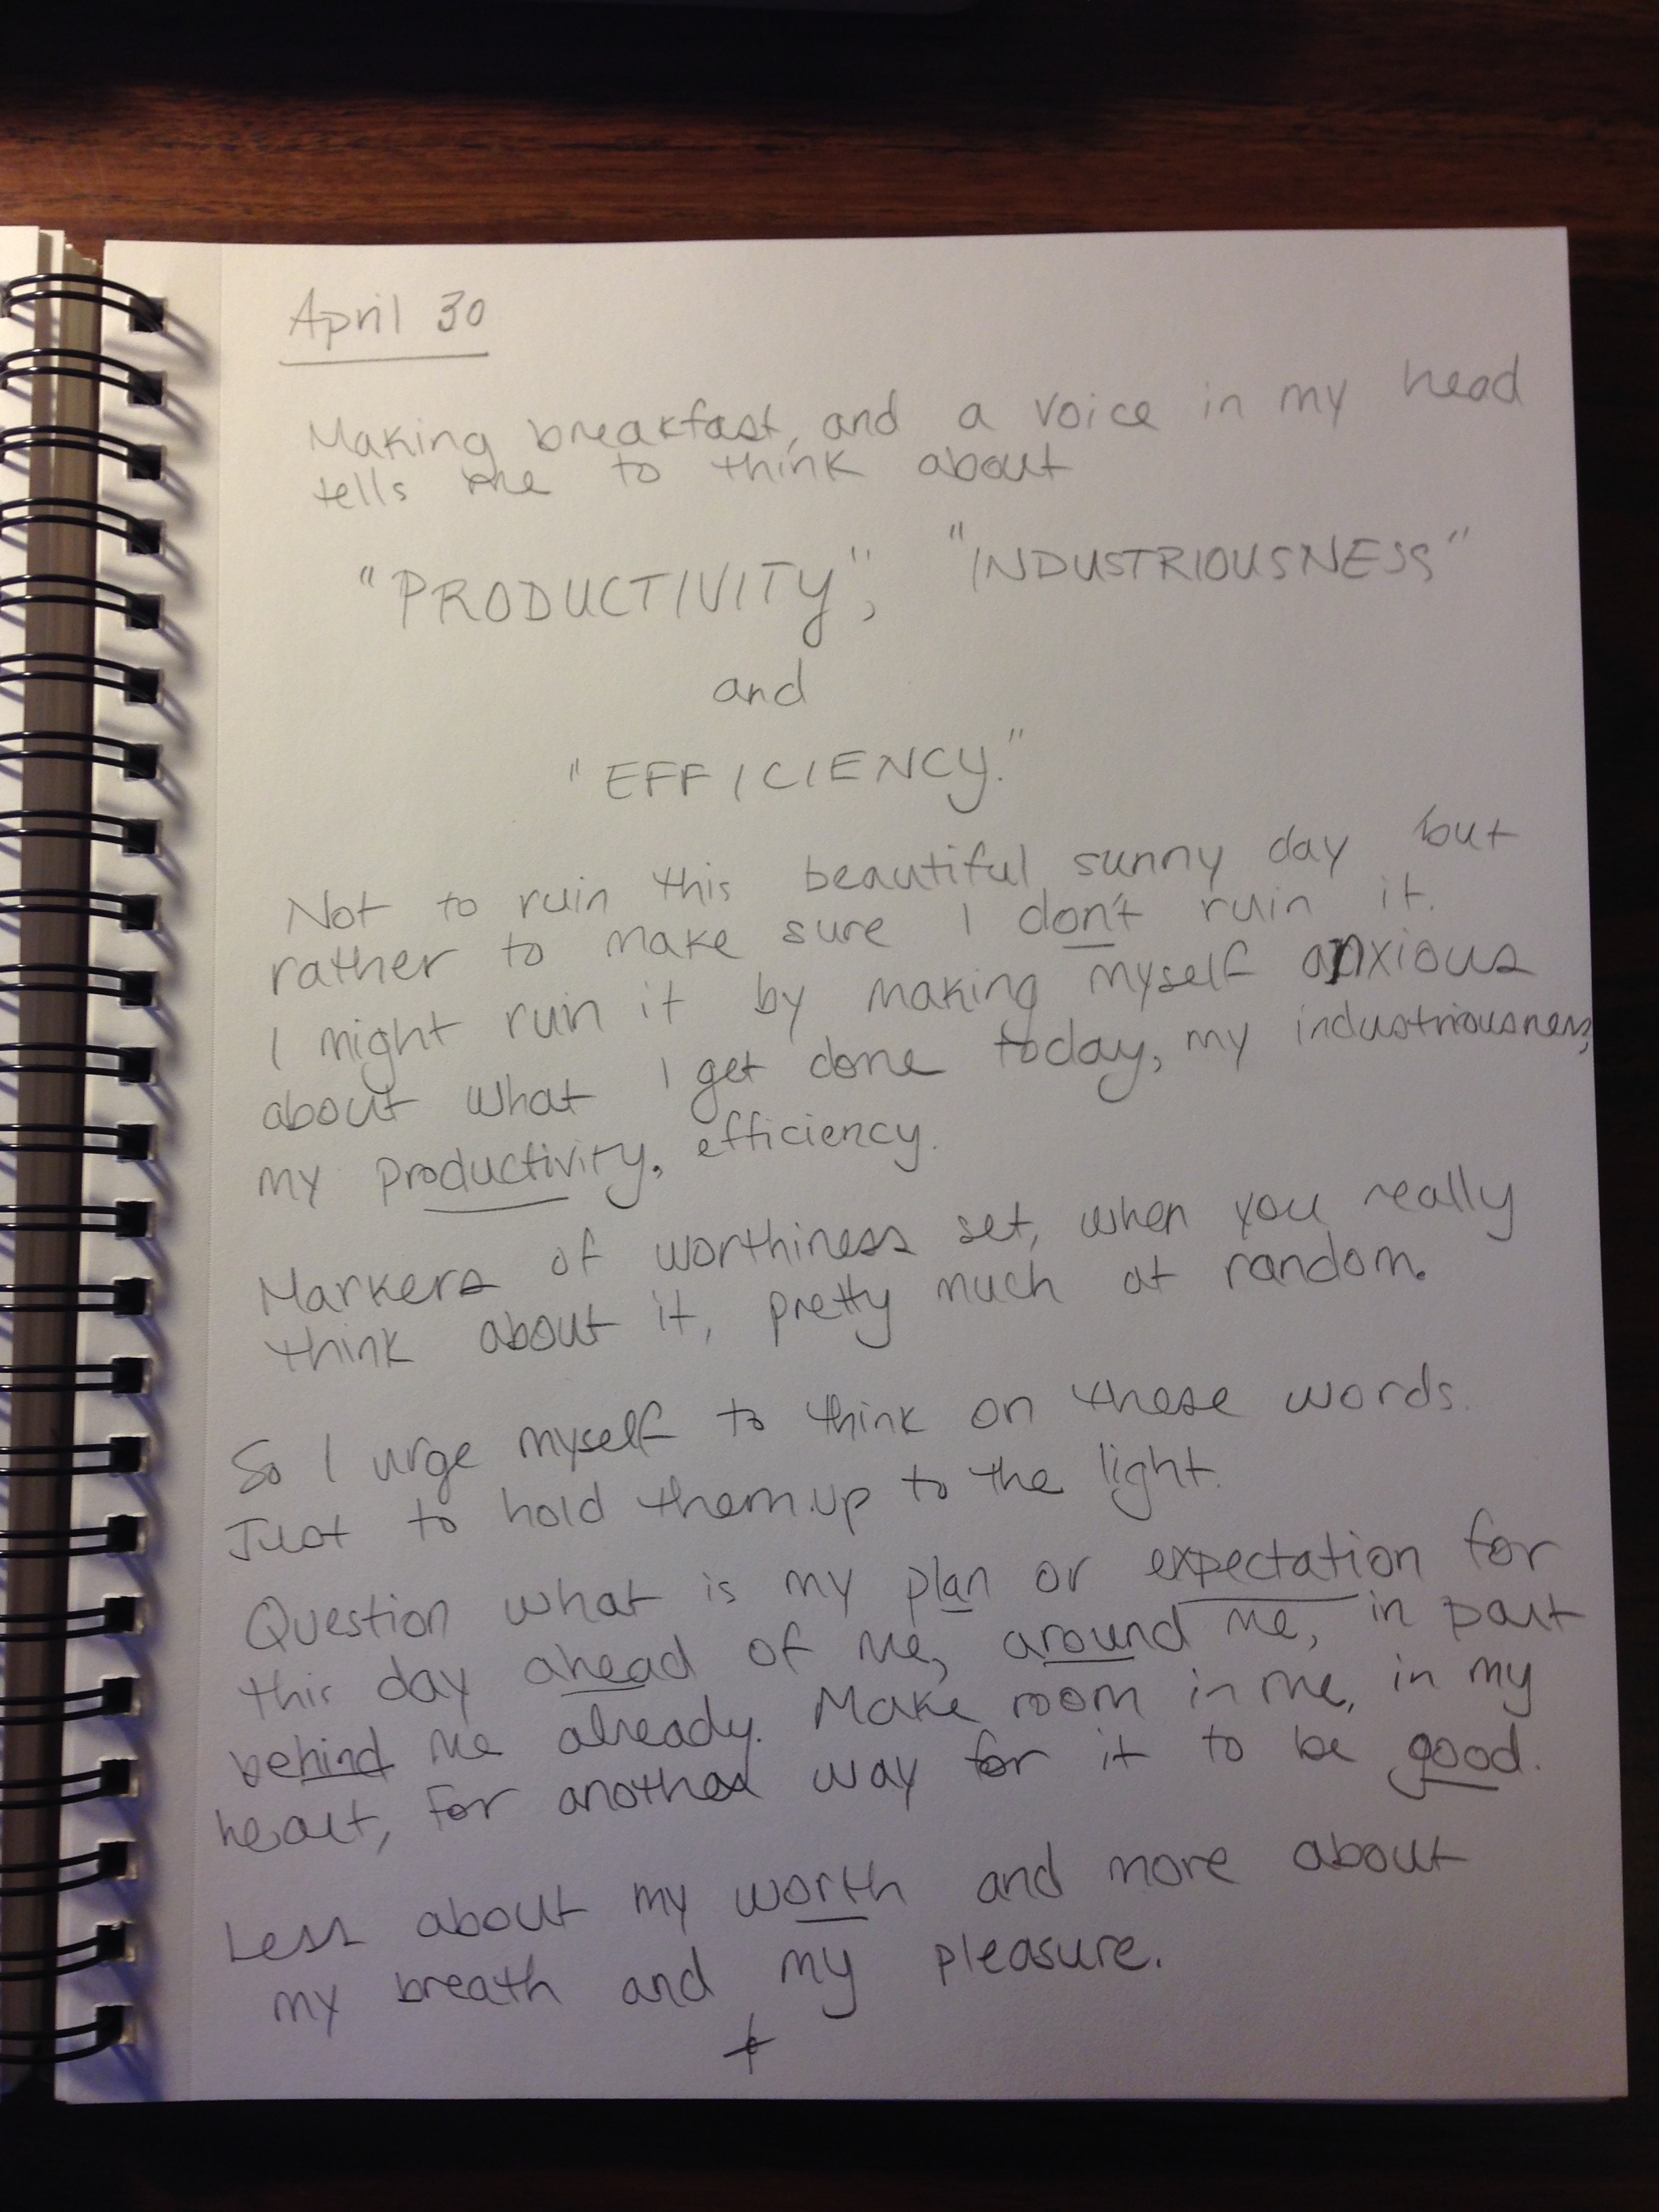 April 30
Making breakfast, and a voice in my head
tells me to think about
"PRODUCTIVITY", "INDUSTRIOUSNESS"
and
"EFFICIENCY."
Not to ruin this beautiful sunny day but
rather to make sure I don't ruin it.
I might ruin it by making myself anxious
about what I get done today, my industriousness,
my productivity, efficiency.
Markers of worthiness set, when you really
think about it, pretty much at random.
So I urge myself to think on these words.
Just to hold them up to the light.
Question what is my plan or expectation for
this day ahead of me, around me, in part
behind me already. Make room in me, in my
heart, for another way for it to be good.
Less about my worth and more about
my breath and my pleasure.